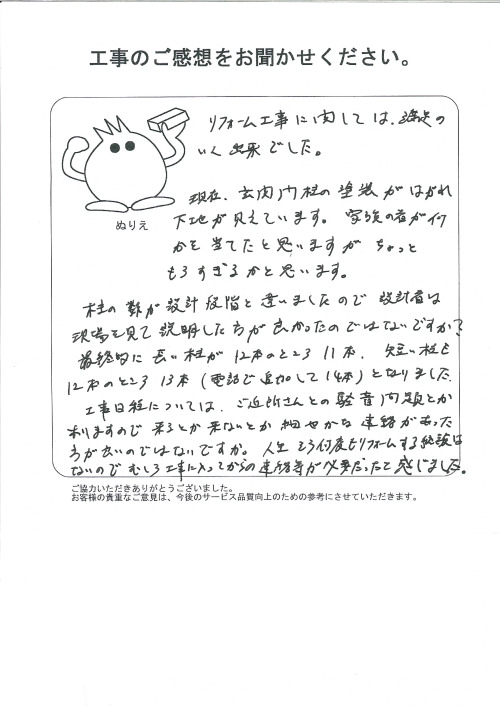 工事のご感想をお聞かせください。
リフォーム工事に関しては、満足の
いく出来でした。
ぬりえ
現在、玄関門柱の塗装がはがれ
下地が見えています。家族の者が何
かを当てたと思いますがちょっと
もろすぎるかと思います。
柱の数が設計段階と違いましたので設計者は
現場を見て説明した方が良かったのではないですか?
最終的に長い柱が12本のところ11本、短い柱も
12本のところ13本(電話で追加して14本)となりました。
工事日程については、ご近所さんとの騒音問題とか
ありますので来るとか来ないとか細やかな連絡があった
方が良いのではないですか。人生そう何度もリフォームする経験は
ないのでむしろ工事に入ってからの連絡等が必要だったと感じました。
ご協力いただきありがとうございました。
お客様の貴重なご意見は、今後のサービス品質向上のための参考にさせていただきます。